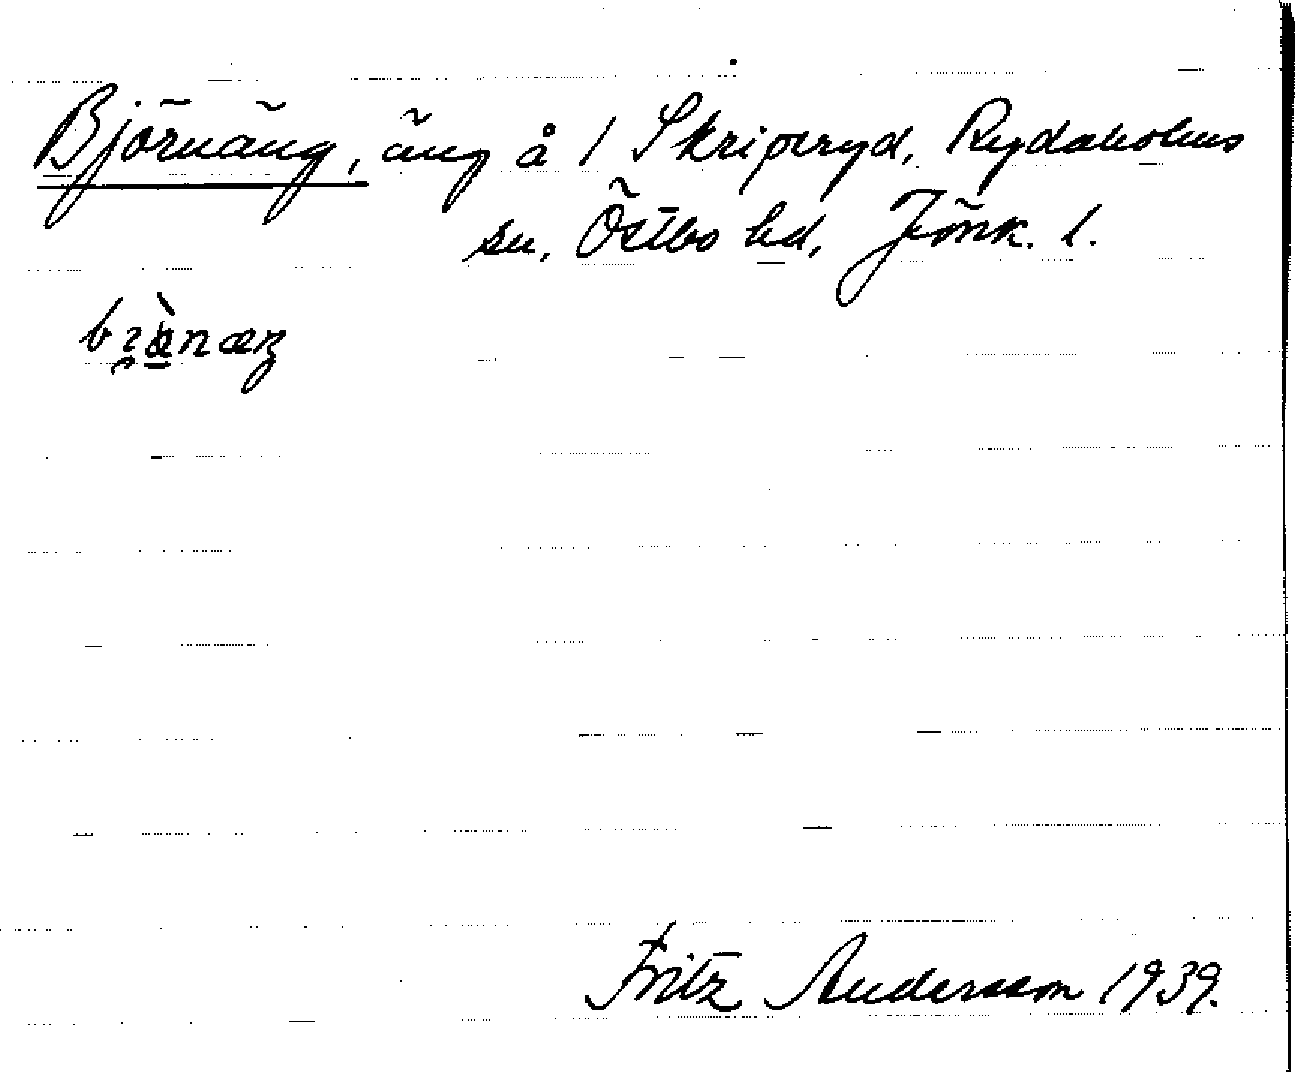 Björnäng, äng å 1 Skriperyd, Rydaholms
sn, Östbo hd, Jönk. l.
Fritz Andersson 1939.